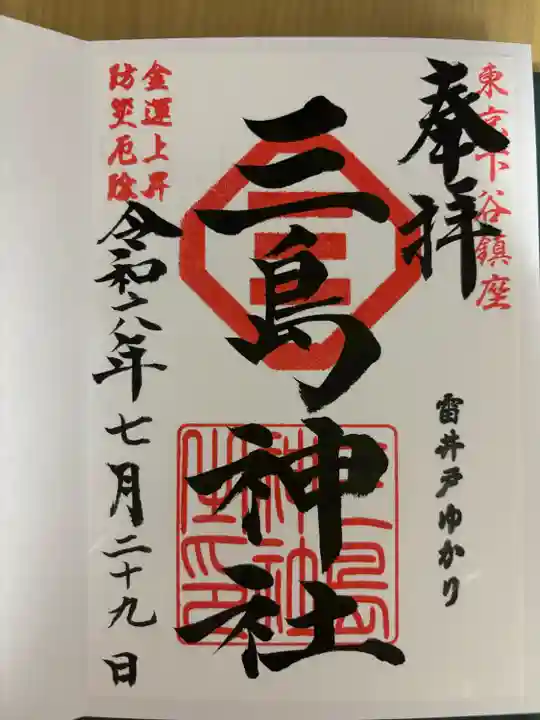 東京下谷鎮座
奉拝
雷井戸ゆかり
三島神社
三島神社之印
金運上昇
防災厄除
令和六年七月二十九日